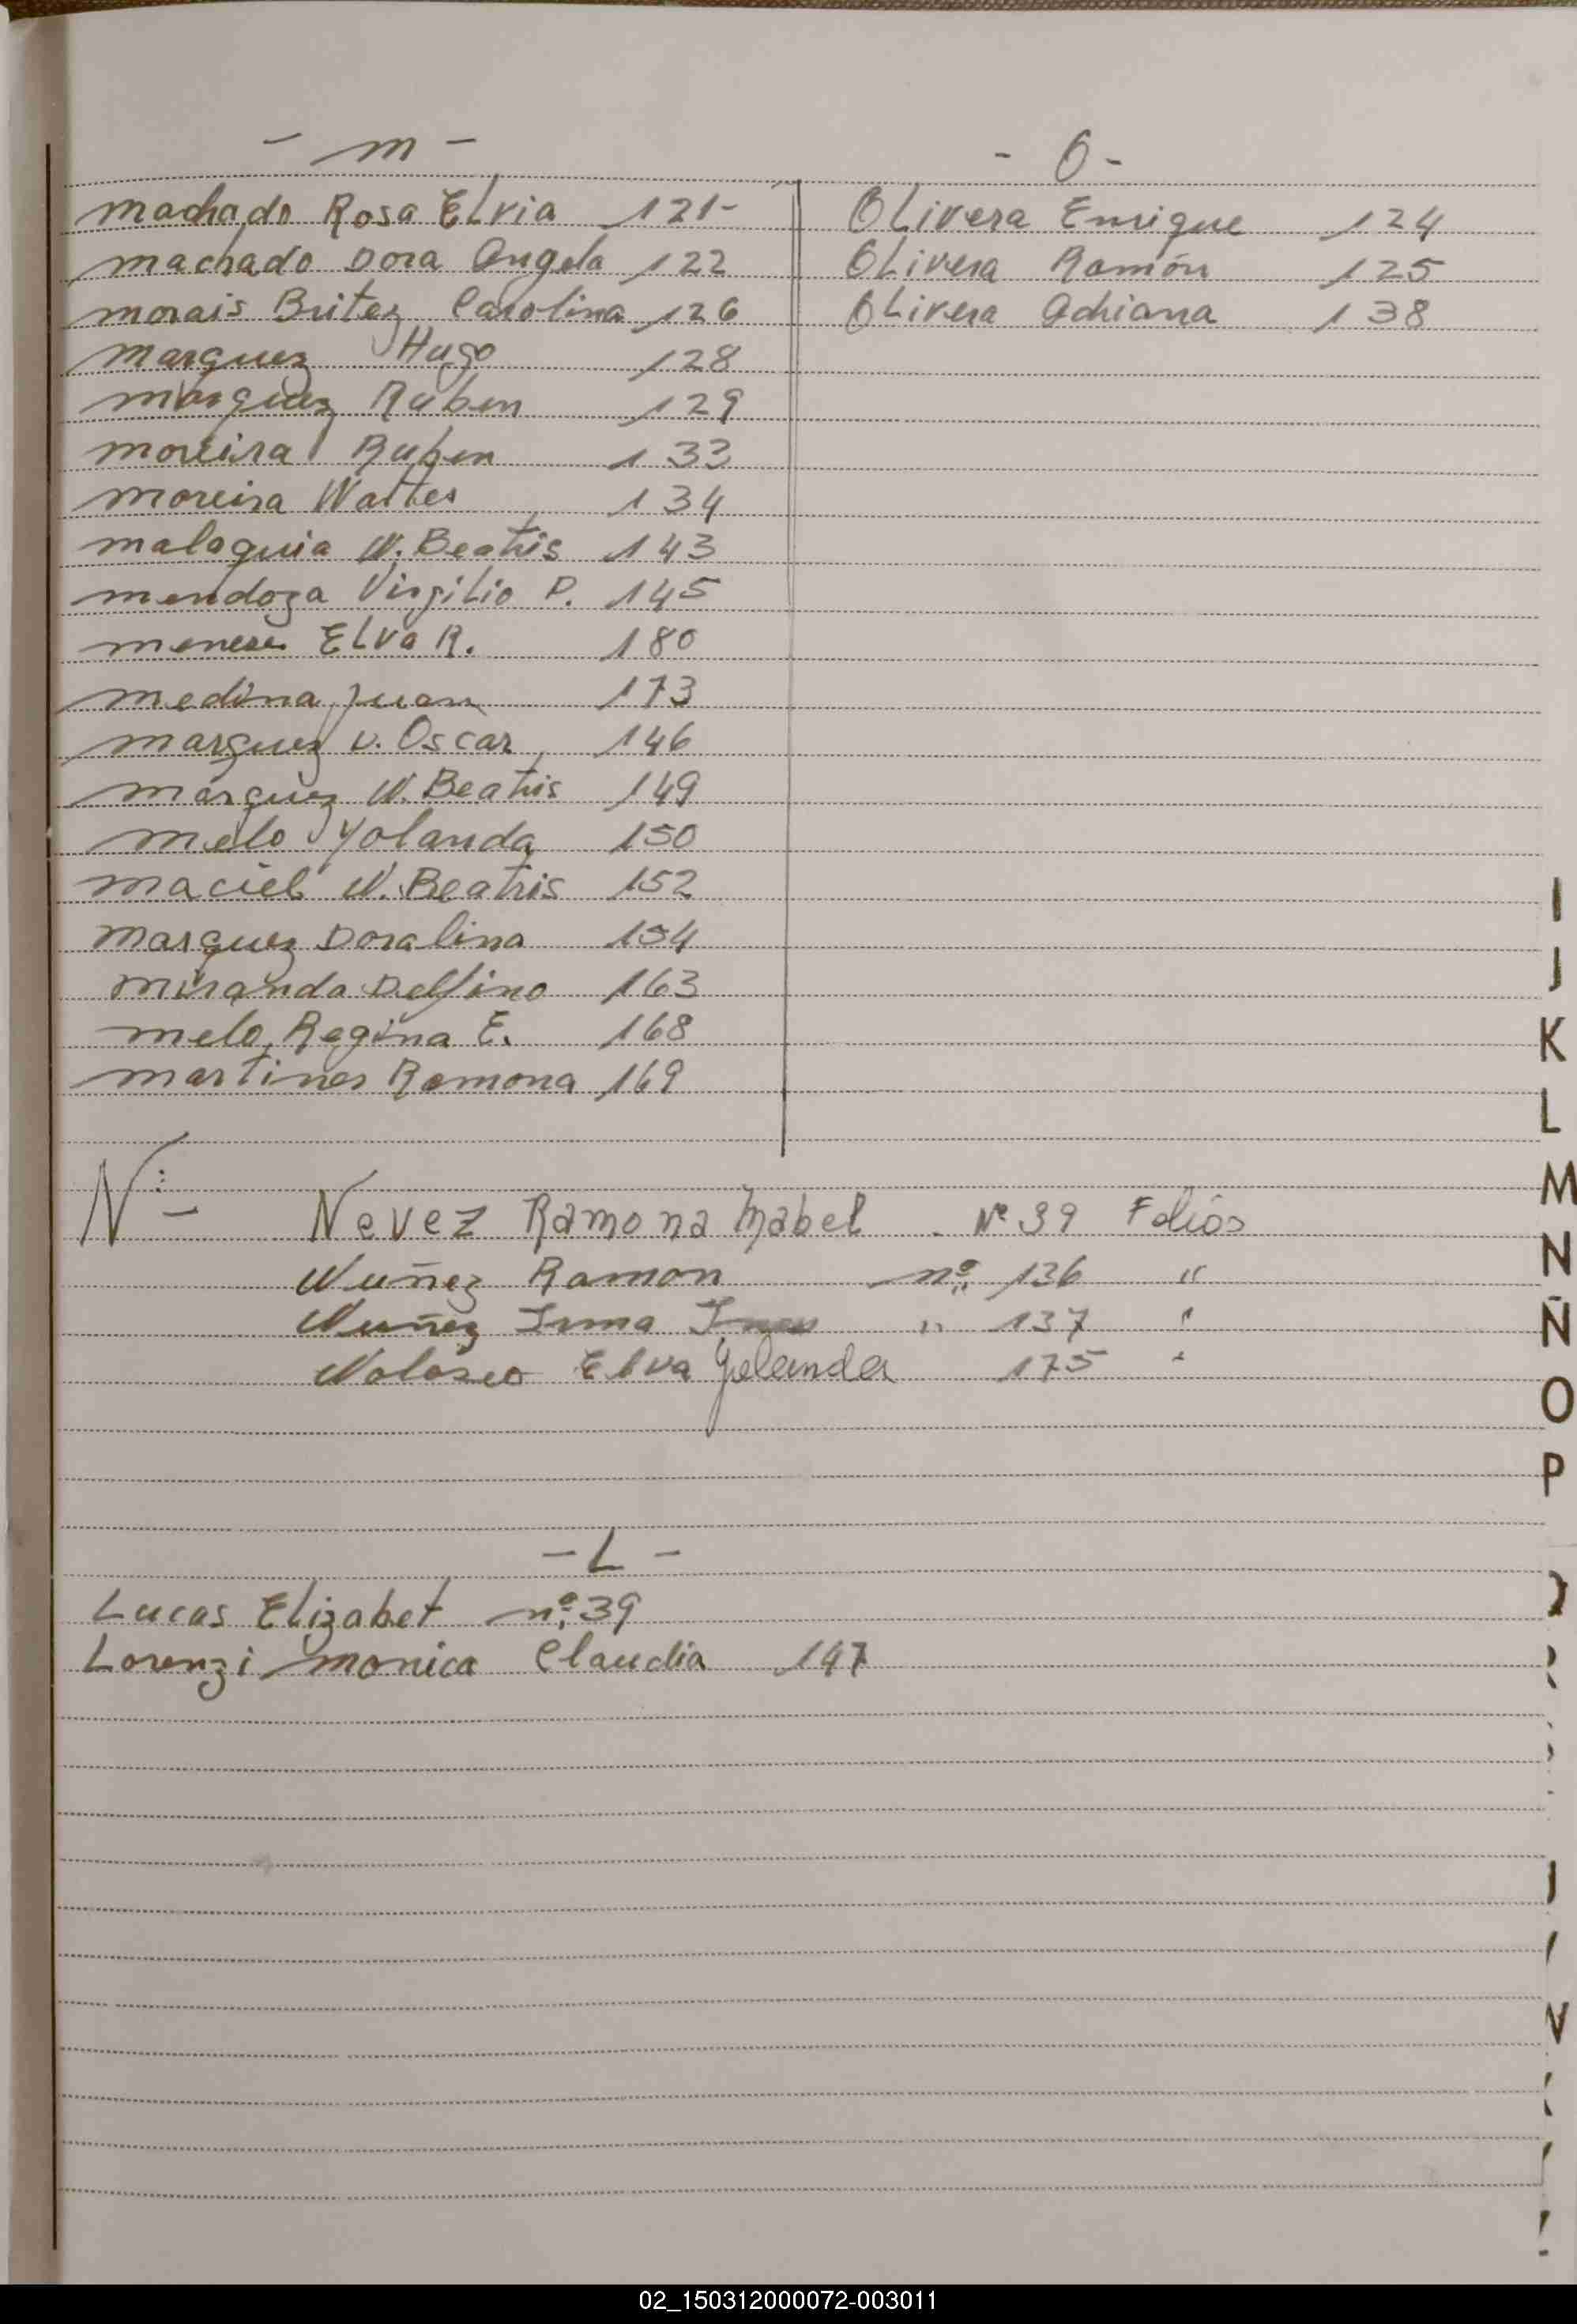 - M -
Machado Rosa Elvia 121-
Machado Dora Angela 122
Morais Britez Carolina 126
Marquez Hugo 128
Marquez Ruben 129
Moreira Ruben 133
Moreira Walter 134
Malaquia N. Beatris 143
Mendoza Virgilio P. 145
Meneses Elva R. 180
Medina Juan 173
Marquez V. Oscar 146
Marquez N. Beatris 149
Melo Yolanda 150
Maciel N. Beatris 152
Marquez Doralina 154
Miranda Delfino 163
Melo Regina E. 168
Martines Ramona 169
- O -
Olivera Enrique 124
Olivera Ramón 125
Olivera Adriana 138
N:-
Nevez Ramona Mabel - Nº 39 Folios
Nuñez Ramon nº 136 "
Nuñez Irma Ines " 137 "
Elva Yolanda 175 "
- L -
Lucas Elizabet nº 39
Lorenzi Monica Claudia 147
I
J
K
L
M
N
Ñ
O
P
V
02_150312000072-003011